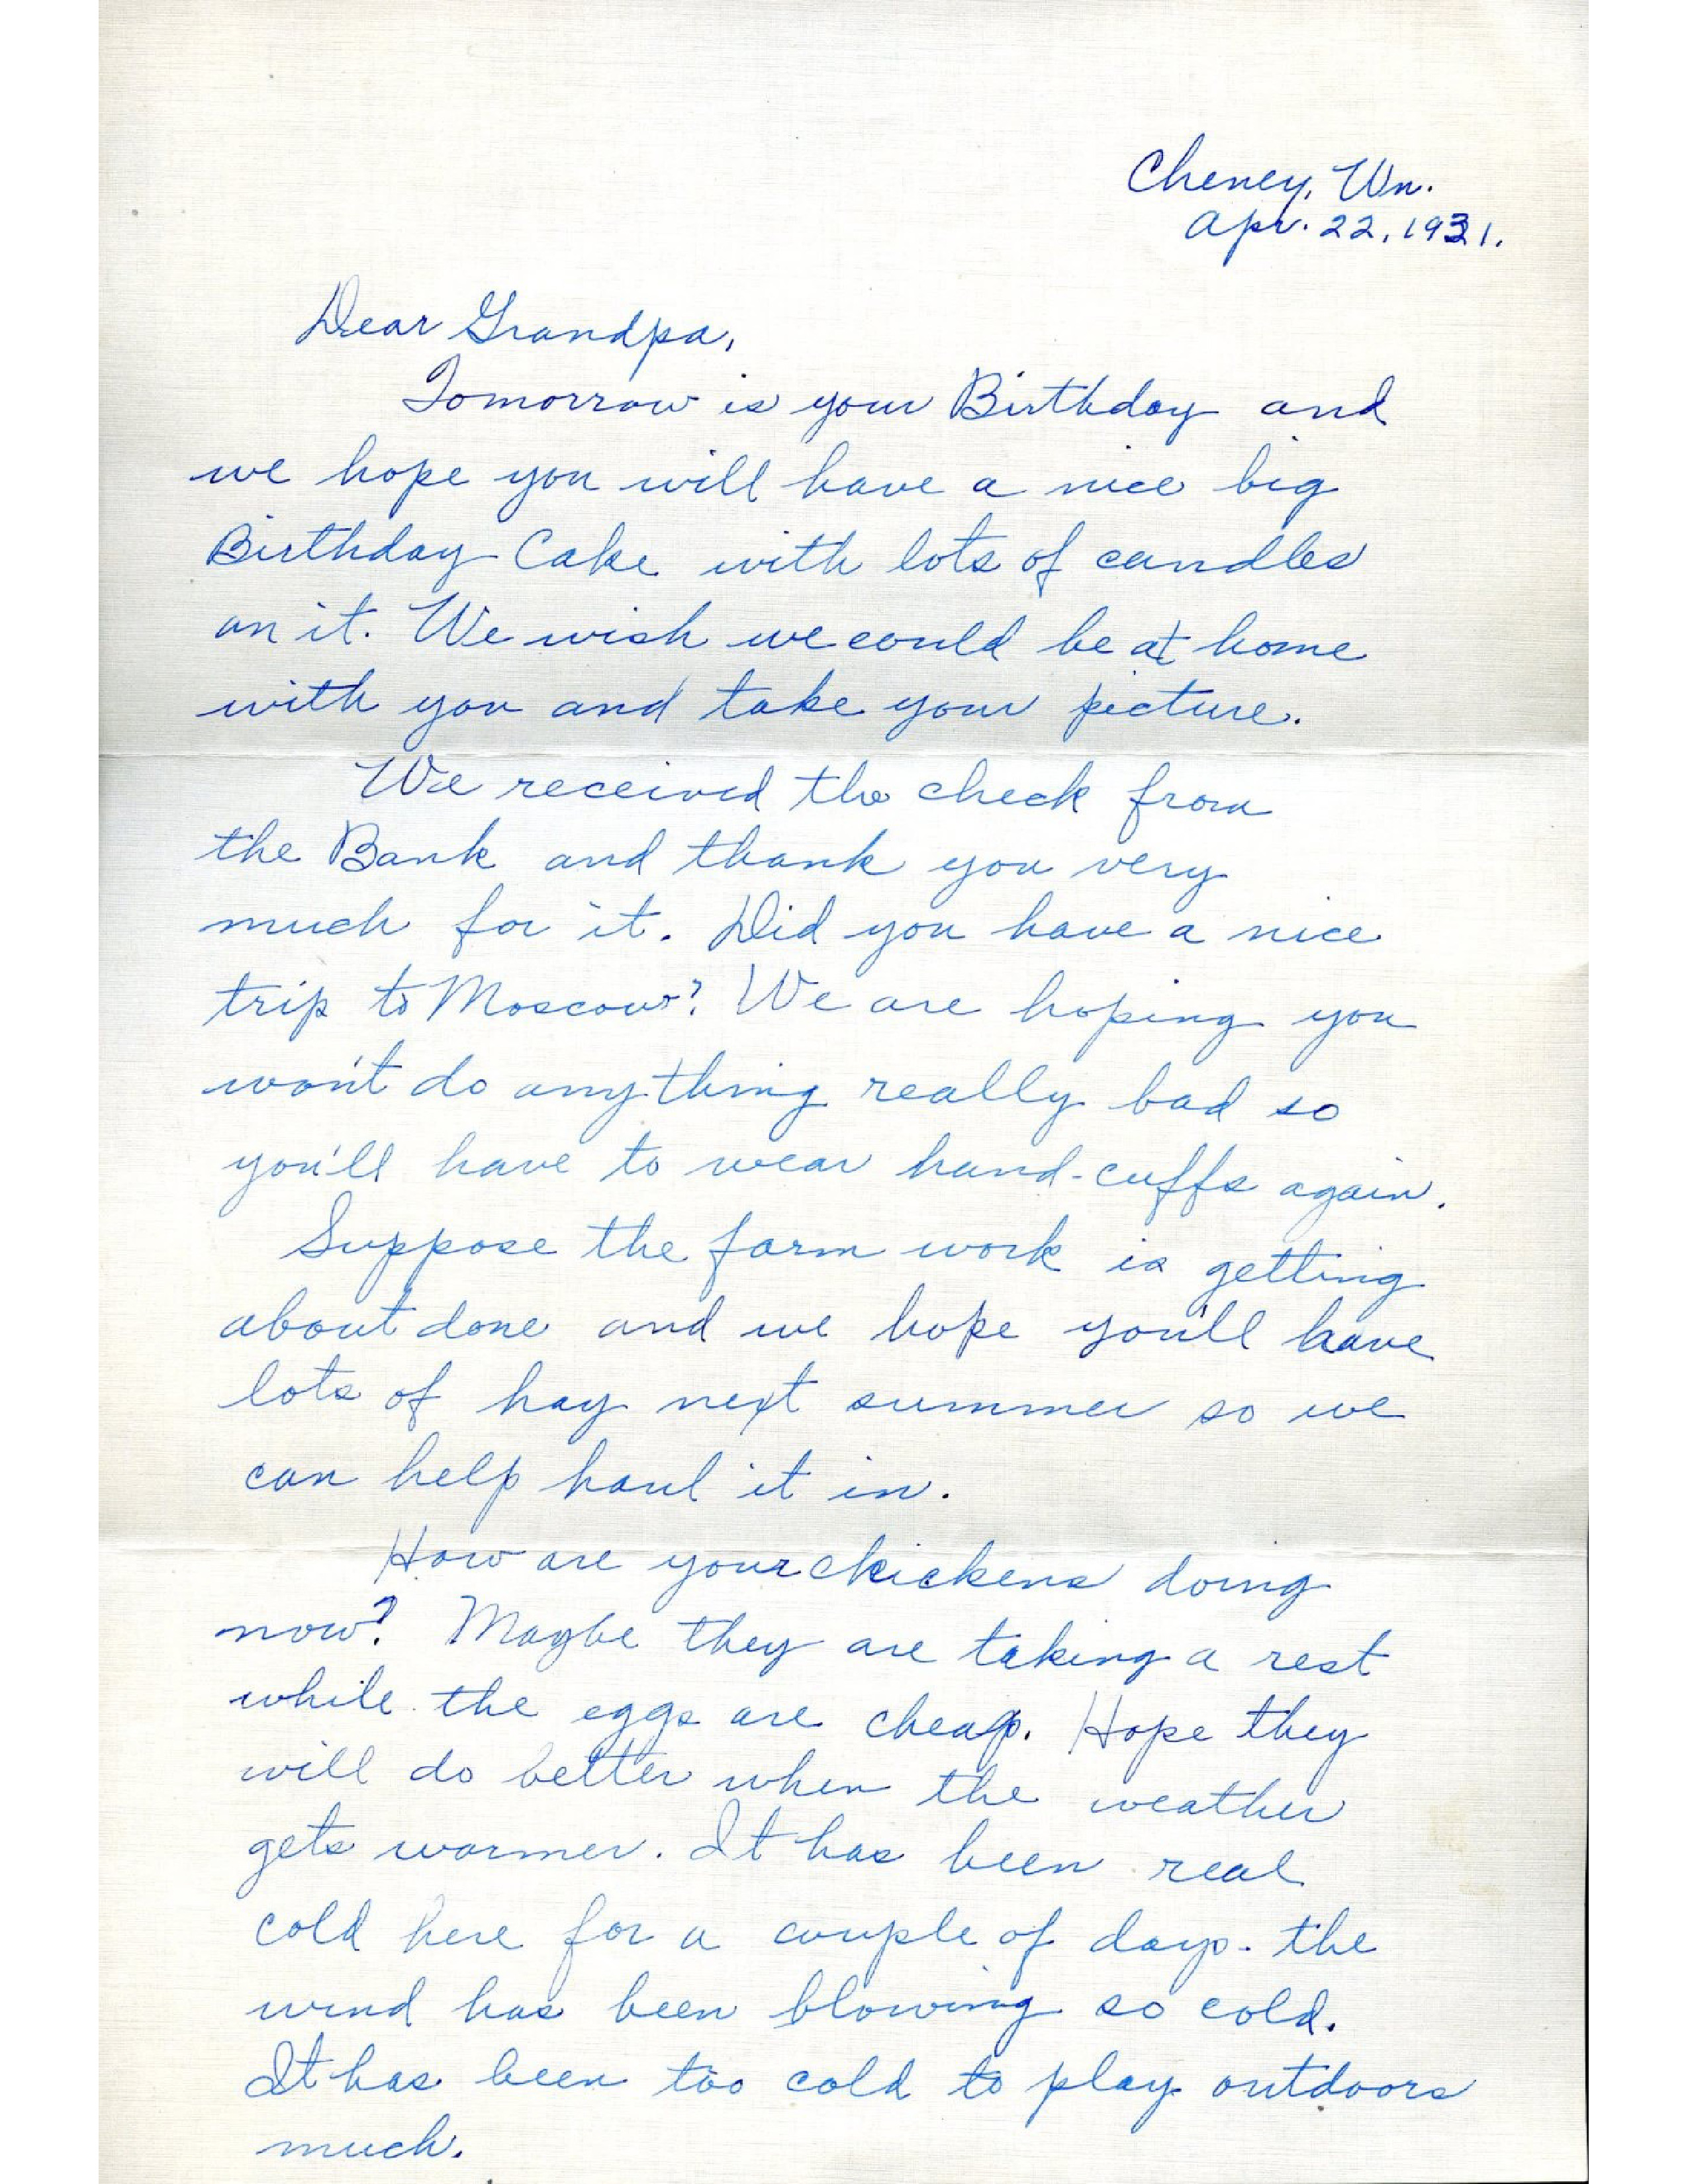 Cheney, Wn.
Apr. 22, 1931.
Dear Grandpa,
Tomorrow is your Birthday and
we hope you will have a nice big
Birthday Cake with lots of candles
on it. We wish we could be at home
with you and take your picture.
We received the check from
the Bank and thank you very
much for it. Did you have a nice
trip to Moscow? We are hoping you
won't do anything really bad so
you'll have to wear hand-cuffs again.
Suppose the farm work is getting
about done and we hope you'll have
lots of hay next summer so we
can help haul it in.
How are your chickens doing
now? Maybe they are taking a rest
while the eggs are cheap. Hope they
will do better when the weather
gets warmer. It has been real
cold here for a couple of days. the
wind has been blowing so cold.
It has been too cold to play outdoors
much.